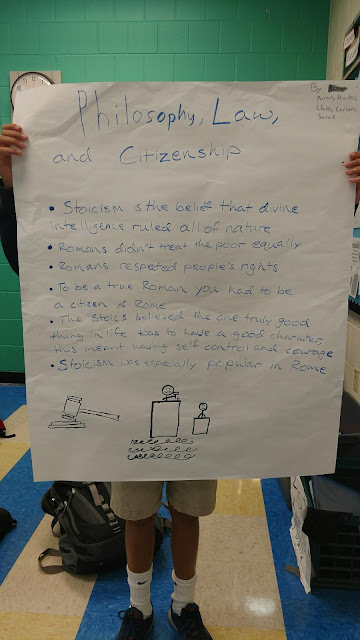 Philosophy, Law,
and Citizenship
By
• Stoicism is the belief that divine
intelligence ruled all of nature
• Romans didn't treat the poor equally
• Romans respeted people's rights
• To be a true Roman you had to be
a citizen of Rome
• The Stoics believed the one truly good
thing in life was to have a good charater,
this meant having self control and courage
• Stoicism was especially popular in Rome